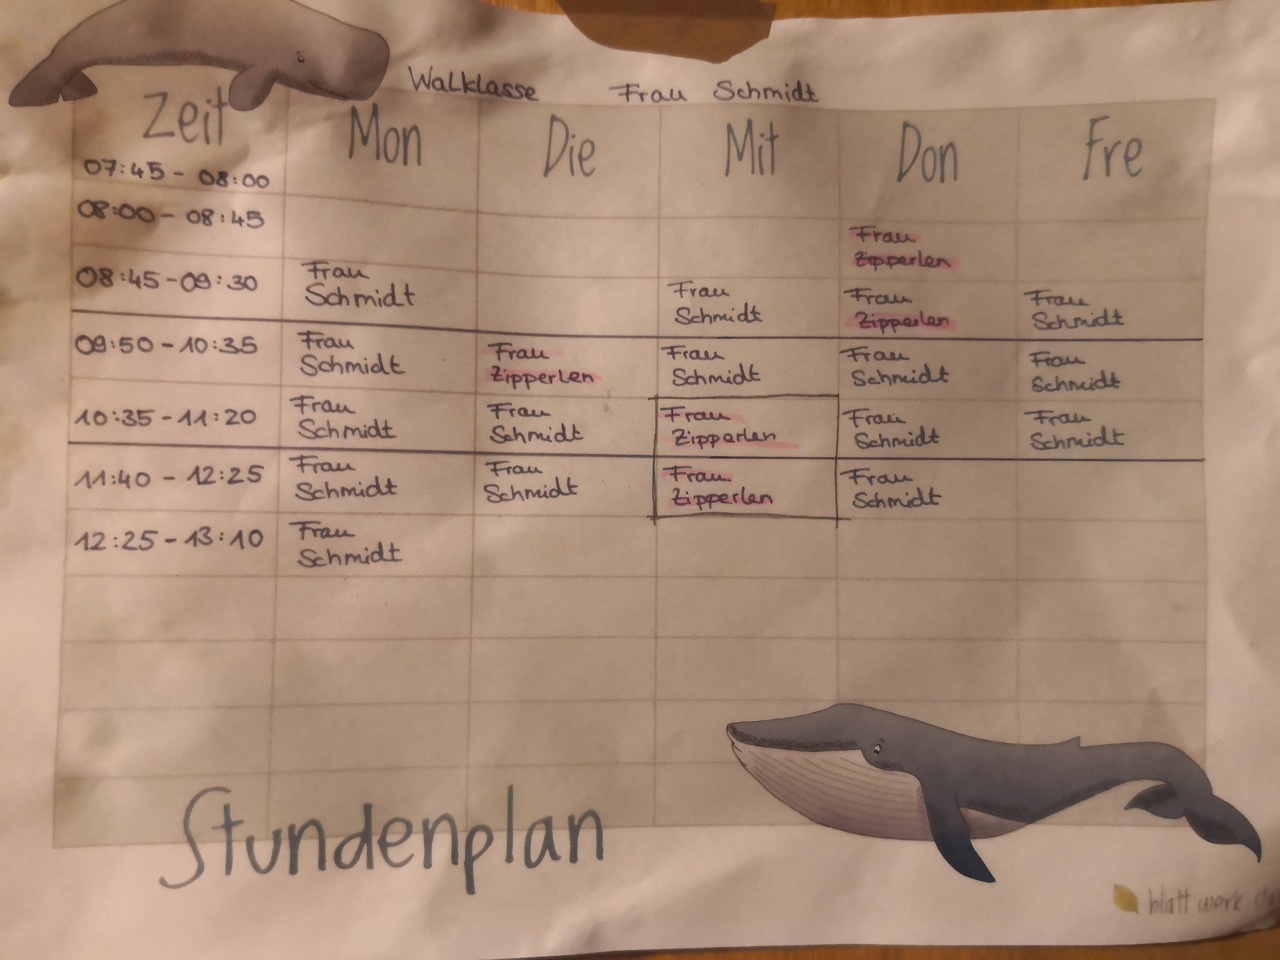 Walklasse Frau Schmidt
Zeit Mon Die Mit Don Fre
07:45 - 08:00
08:00 - 08:45
Frau
Zipperlen
08:45 - 09:30
Frau
Schmidt
Frau
Schmidt
Frau
Zipperlen
Frau
Schmidt
09:50 - 10:35
Frau
Schmidt
Frau
Zipperlen
Frau
Schmidt
Frau
Schmidt
Frau
Schmidt
10:35 - 11:20
Frau
Schmidt
Frau
Schmidt
Frau
Zipperlen
Frau
Schmidt
Frau
Schmidt
11:40 - 12:25
Frau
Schmidt
Frau
Schmidt
Frau
Zipperlen
Frau
Schmidt
12:25 - 13:10
Frau
Schmidt
Stundenplan
blatt werk